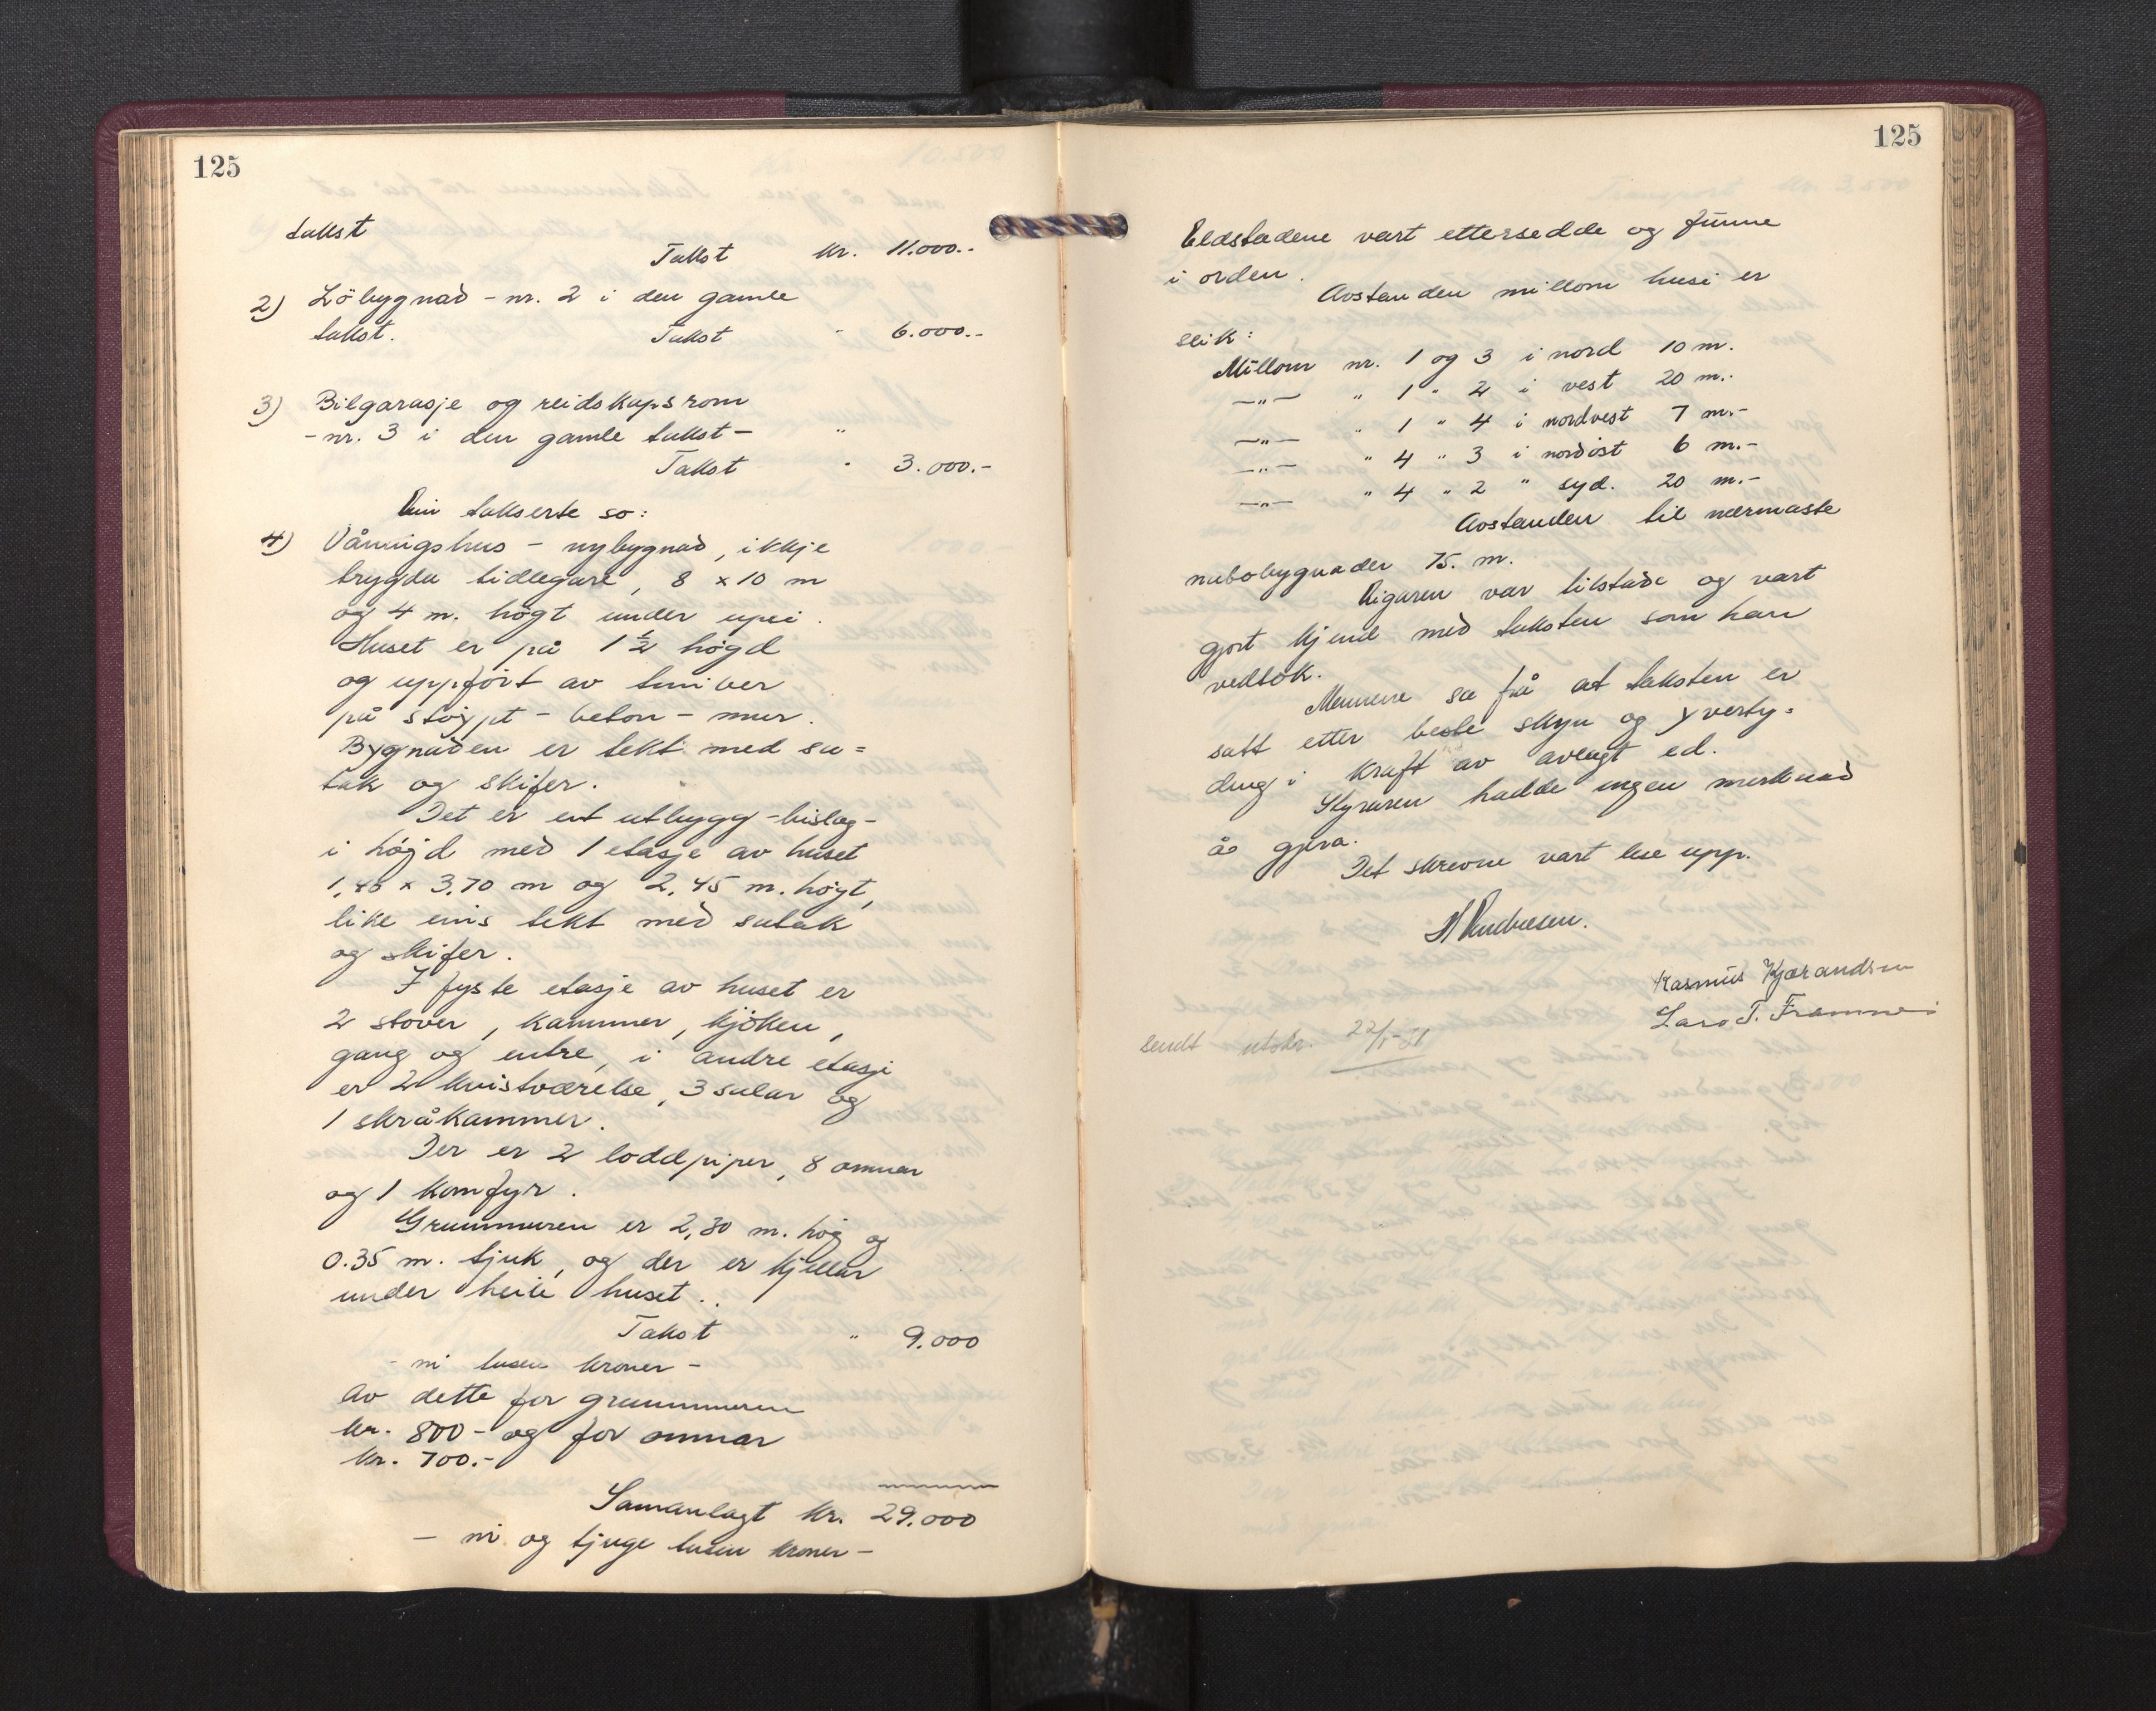 125
takst
Takst kr. 11.000.-
2) Löbygnad - nr. 2 i den gamle
takst. Takst " 6.000.-
3) Bilgarasje og reidskapsrom
- nr. 3 i den gamle takst - "
Takst " 3.000.-
Ein takserte so:
4) Våningshus - nybygnad, ikkje
trygda tidlegare, 8 x 10 m
og 4 m. högt under upsi.
Huset er på 1 1/2 högd
og uppfört av timber
på stöypt - beton - mur.
Bygnaden er tekt med su=
tak og skifer.
Det er eit utbygg - bislag -
i högd med 1 etasje av huset
1,45 x 3,70 m og 2,45 m. högt,
like eins tekt med sutak
og skifer.
I fyste etasje av huset er
2 stover, kammer, kjöken,
gang og entre, i andre etasje
er 2 kvistværelse, 3 salar og
1 skråkammer.
Der er 2 loddpiper, 8 omnar
og 1 komfyr.
Grunnmuren er 2,30 m. hög og
0.35 m. tjuk, og der er kjellar
under heile huset.
Takst " 9.000
- ni tusen kroner -
Av dette for grunnmuren
kr. 800 - og for omnar
kr. 700.-
Samanlagt kr. 29.000
- ni og tjuge tusen kroner -
125
Eldstadene vart ettersedde og funne
i orden.
Avstanden millom husi er
slik:
Millom nr. 1 og 3 i nord 10 m.
-"- " 1 " 2 i vest 20 m.-
-"- " 1 " 4 i nordvest 7 m.-
-"- " 4 " 3 i nordöst 6 m.-
-"- " 4 " 2 " syd. 20 m.-
Avstanden til nærmaste
nabobygnader 75. m.
Eigaren var tilstade og vart
gjort kjend med taksten som han
vedtok.
Mennene sa frå at taksten er
satt etter beste skyn og yverty=
ding i kraft av avlagt ed.
Styraren hadde ingen merknad
å gjera.
Det skrevne vart lese upp.
Andreesen.
Rasmus Kjærandsen
Lars T. Framnes
Sendt utskr. 22/1-51